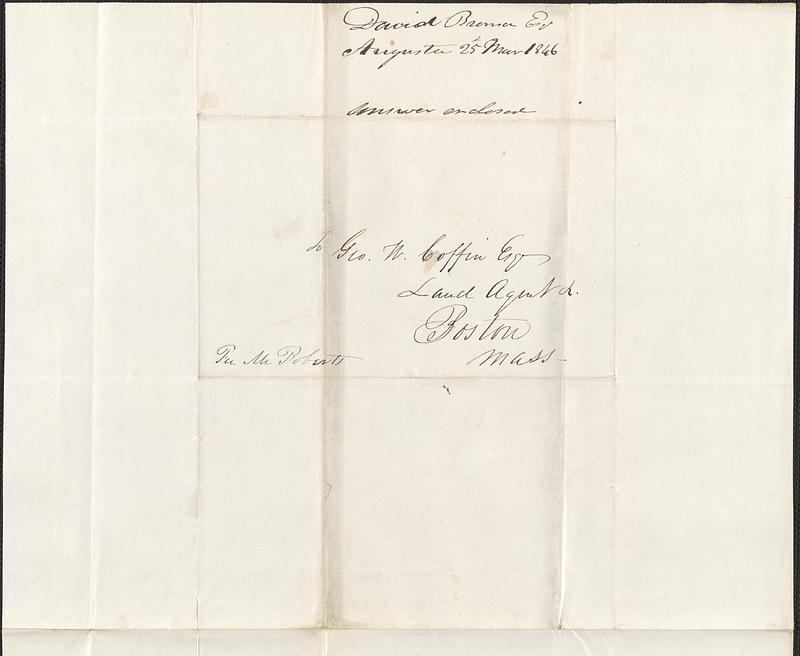 David Bronson Esq
Augusta 25 Mar 1846
answer enclosed
To Geo. W. Coffin Esq
Land Agent &.
Boston
Mass
Per Mr Roberts